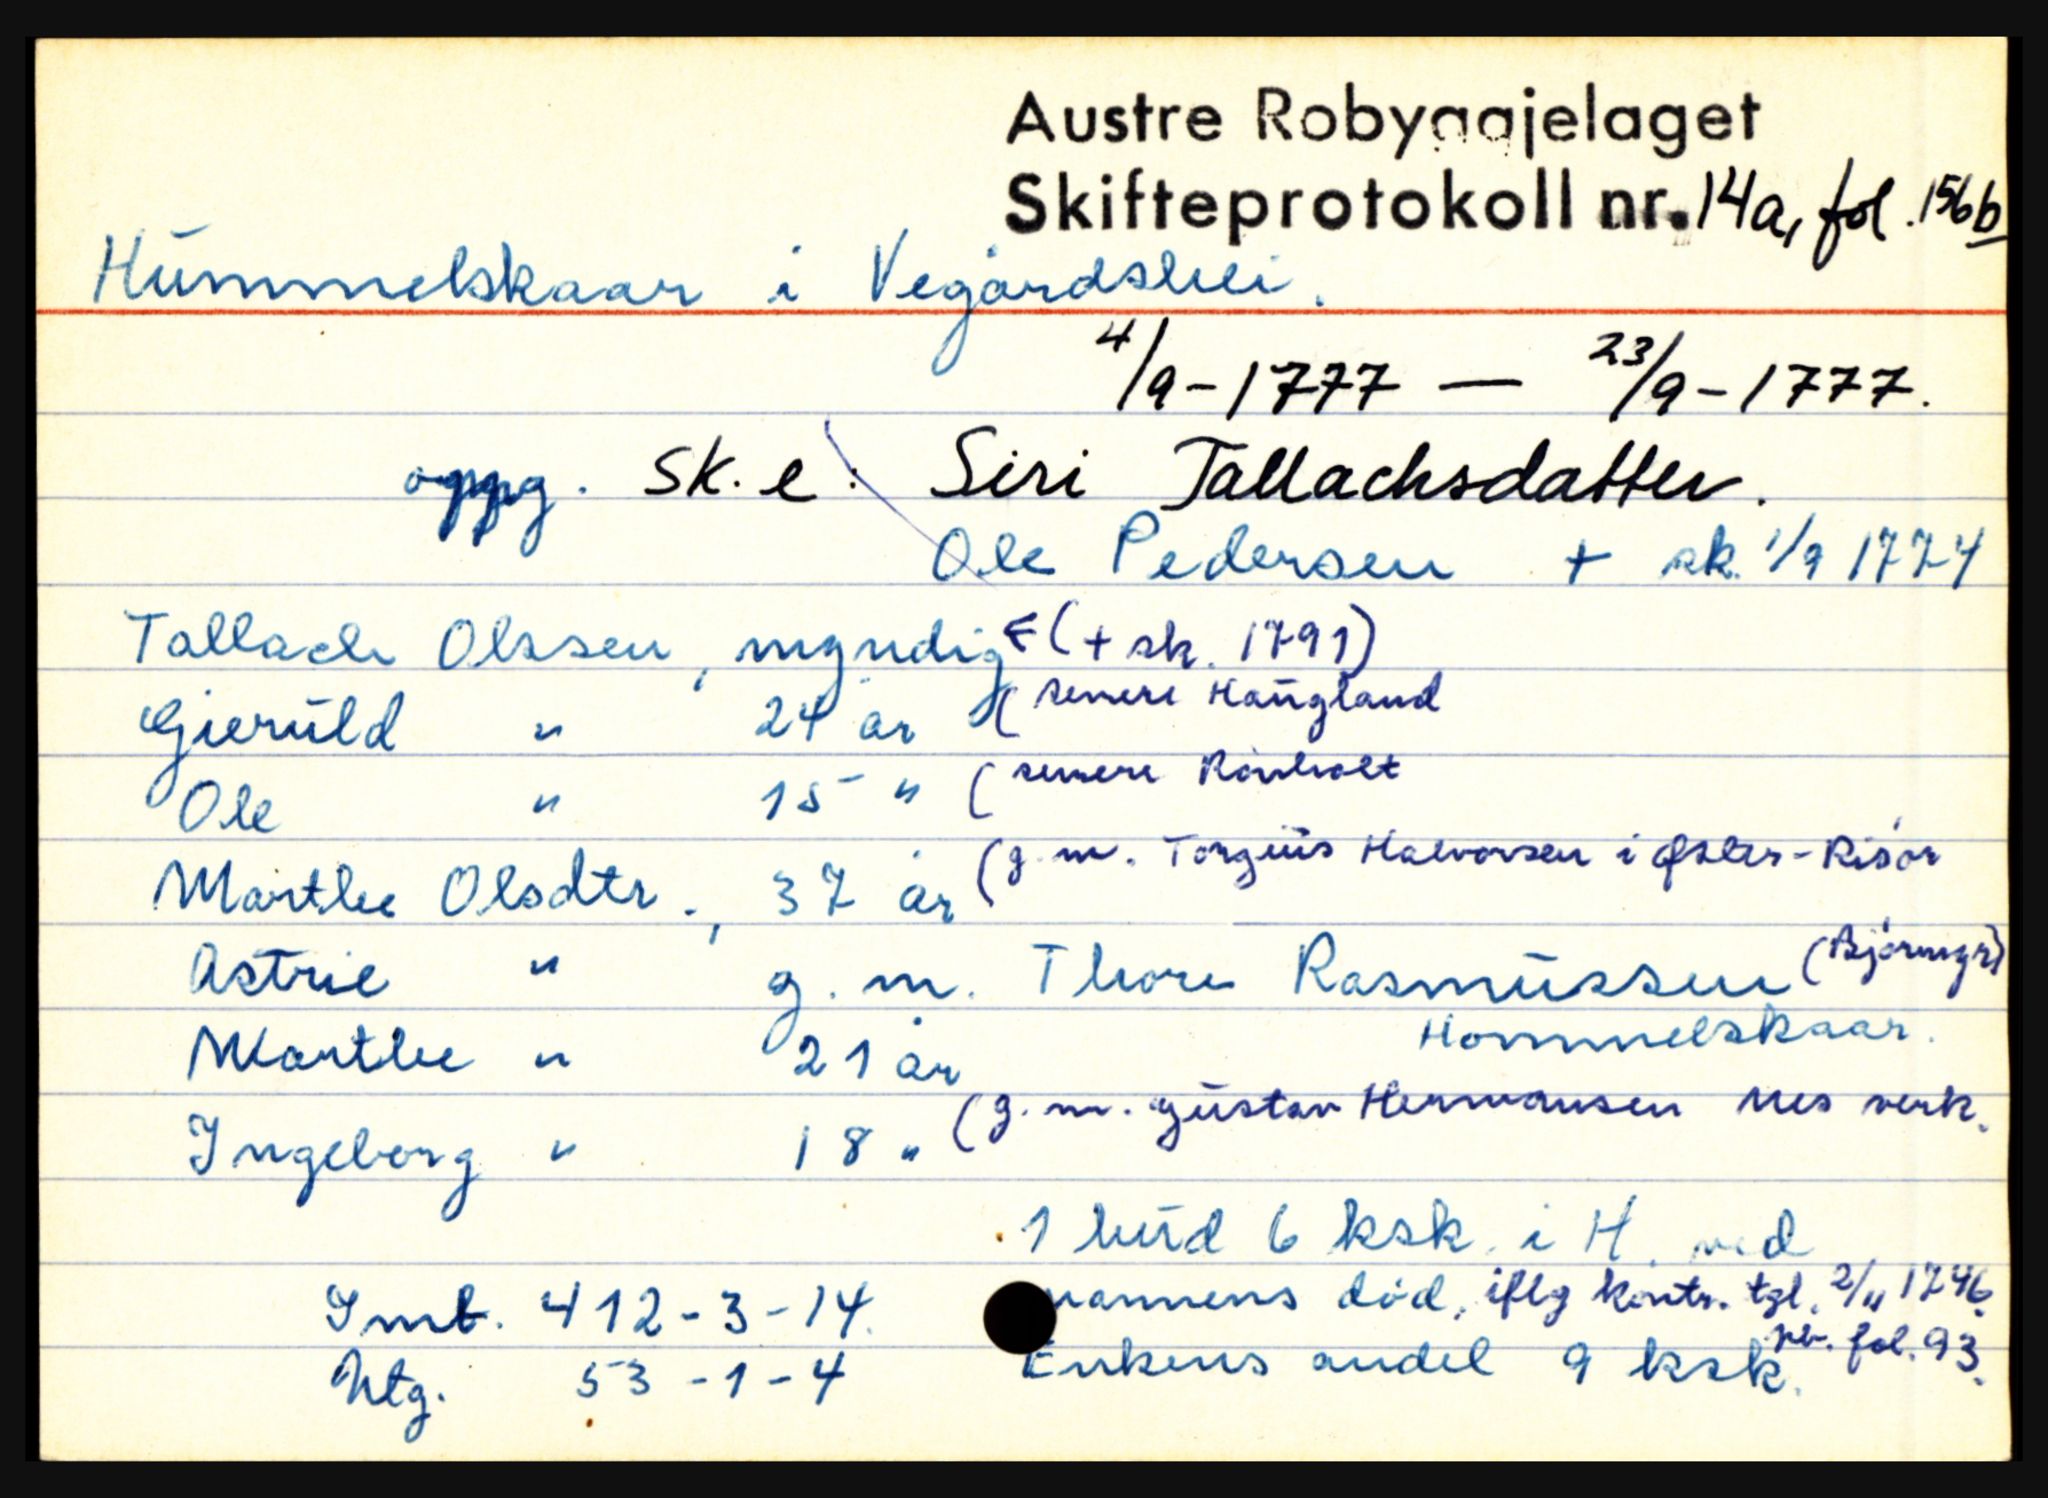 Austre Robyggjelaget
Skifteprotokoll nr. 14a, fol. 156b
Hummelskaar i Vegårdshei.
4/9-1777 — 23/9-1777.
oppg. Sk. e: Siri Tallachsdatter.
Ole Pedersen + sk. 1/9 1774
Tallach Olssen, myndig (+ sk. 1791)
Gieruld " 24 år (senere Haugland
Ole " 15 " (senere Rönholt
Marthe Olsdtr., 37 år (g.m. Torgius Halvorsen i Øster-Risør
Astrie " g.m. Thore Rasmussen
Hommelskaar.
Marthe " 21 år
Ingeborg " 18 " (g.m. Gustav Hermansen Nes verk.
1 hud 6 ksk. i H. ved
mannens død, iflg kontr. tgl. 2/11 1746.
pb. fol. 93.
Enkens andel 9 ksk.
Imb. 412-3-14.
Utg. 53-1-4